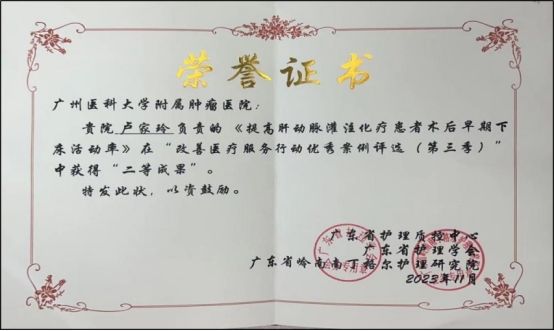 荣誉证书
广州医科大学附属肿瘤医院：
贵院卢家玲负责的《提高肝动脉灌注化疗患者术后早期下
床活动率》在“改善医疗服务行动优秀案例评选（第三季）”
中获得“二等成果”。
特发此状，以资鼓励。
广东省护理质控中心
广东省护理学会
广东省岭南南丁格尔护理研究院
2023年11月